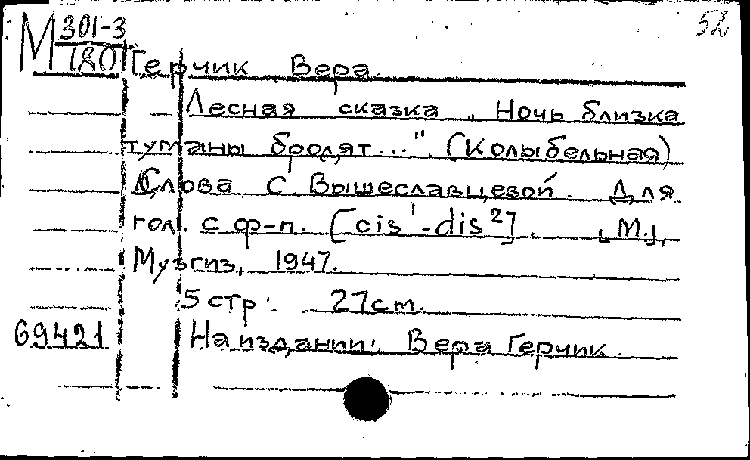 52
М 301-3
180
Герчик Вера.
Лесная сказка "Ночь близка
туманы бродят..." (Колыбельная)
Слова С. Вышеславцевой. Для
гол. с ф-п. [cis¹-dis²]. [М.],
Музгиз, 1947.
5 стр. 27см.
69421 На издании: Вера Герчик.